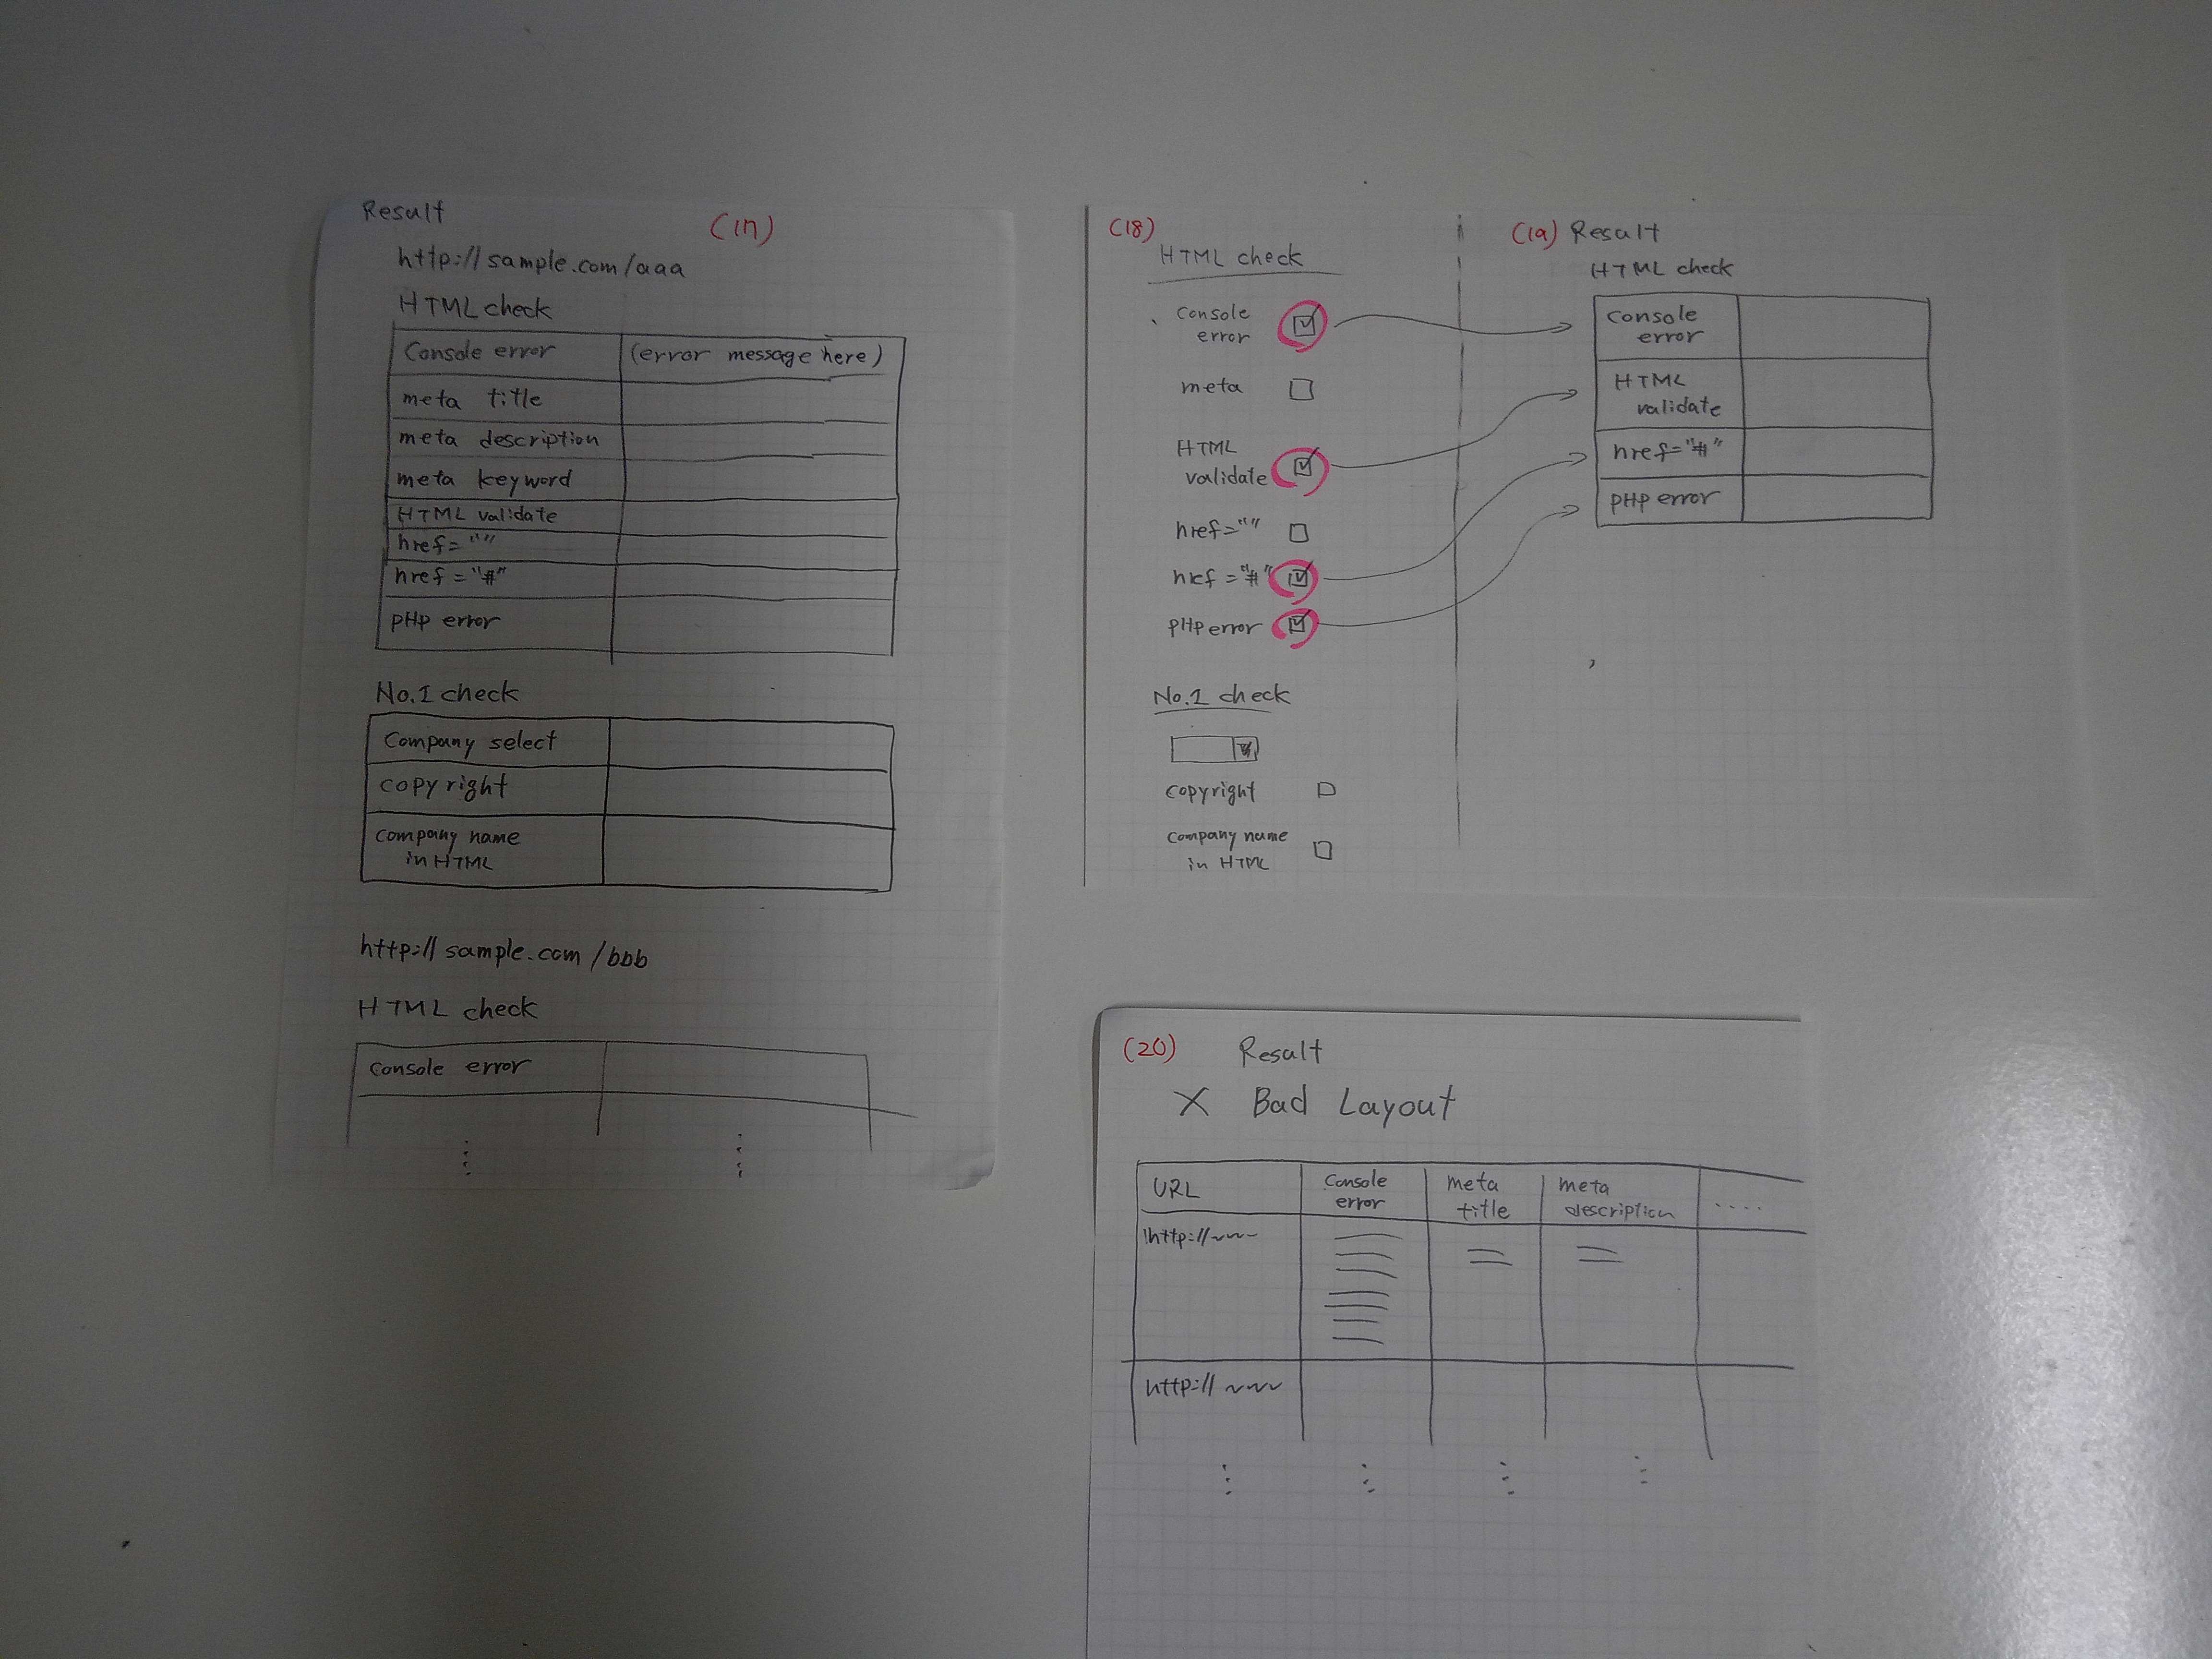 Result
(17)
http://sample.com/aaa
HTML check
Console error
(error message here)
meta title
meta description
meta keyword
HTML validate
href=""
href="#"
PHP error
No.1 check
Company select
copyright
company name
in HTML
http://sample.com/bbb
HTML check
Console error
(18)
HTML check
Console
error
meta
HTML
validate
href=""
href="#"
PHP error
No.1 check
copyright
company name
in HTML
(19) Result
HTML check
Console
error
HTML
validate
href="#"
PHP error
(20) Result
X Bad Layout
URL
Console
error
meta
title
meta
description
....
http://~~~
http://~~~